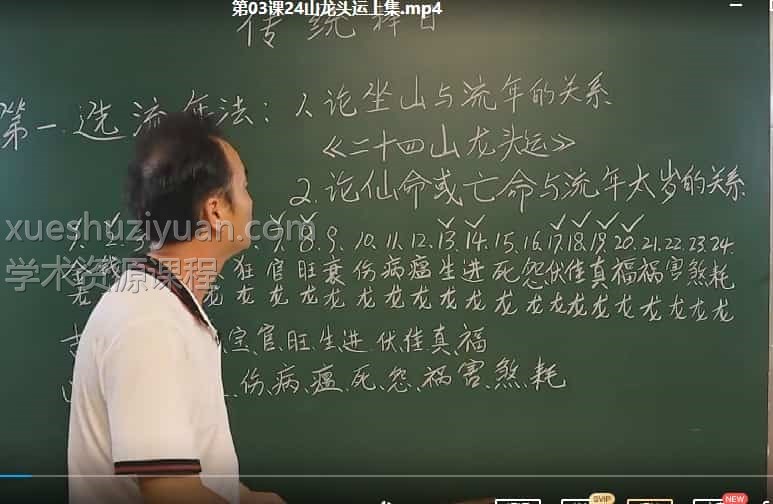 第03课24山龙头运上集.mp4
传统择日
第一.选流年法：1.论坐山与流年的关系
《二十四山龙头运》
2.论仙命或亡命与流年太岁的关系
xueshuziyuan.com
8、9、10、11、12、13、14、15、16、17、18、19、20、21、22、23、24.
学术资源课程
狂官旺衰伤病瘟生进死怨伏佳真福祸害煞耗
龙龙龙龙龙龙龙龙龙龙龙龙龙龙龙龙龙龙龙
吉 宝、官、旺、生、进、伏、佳、真、福
伤、病、瘟、死、怨、祸、害、煞、耗
SVIP
NEW